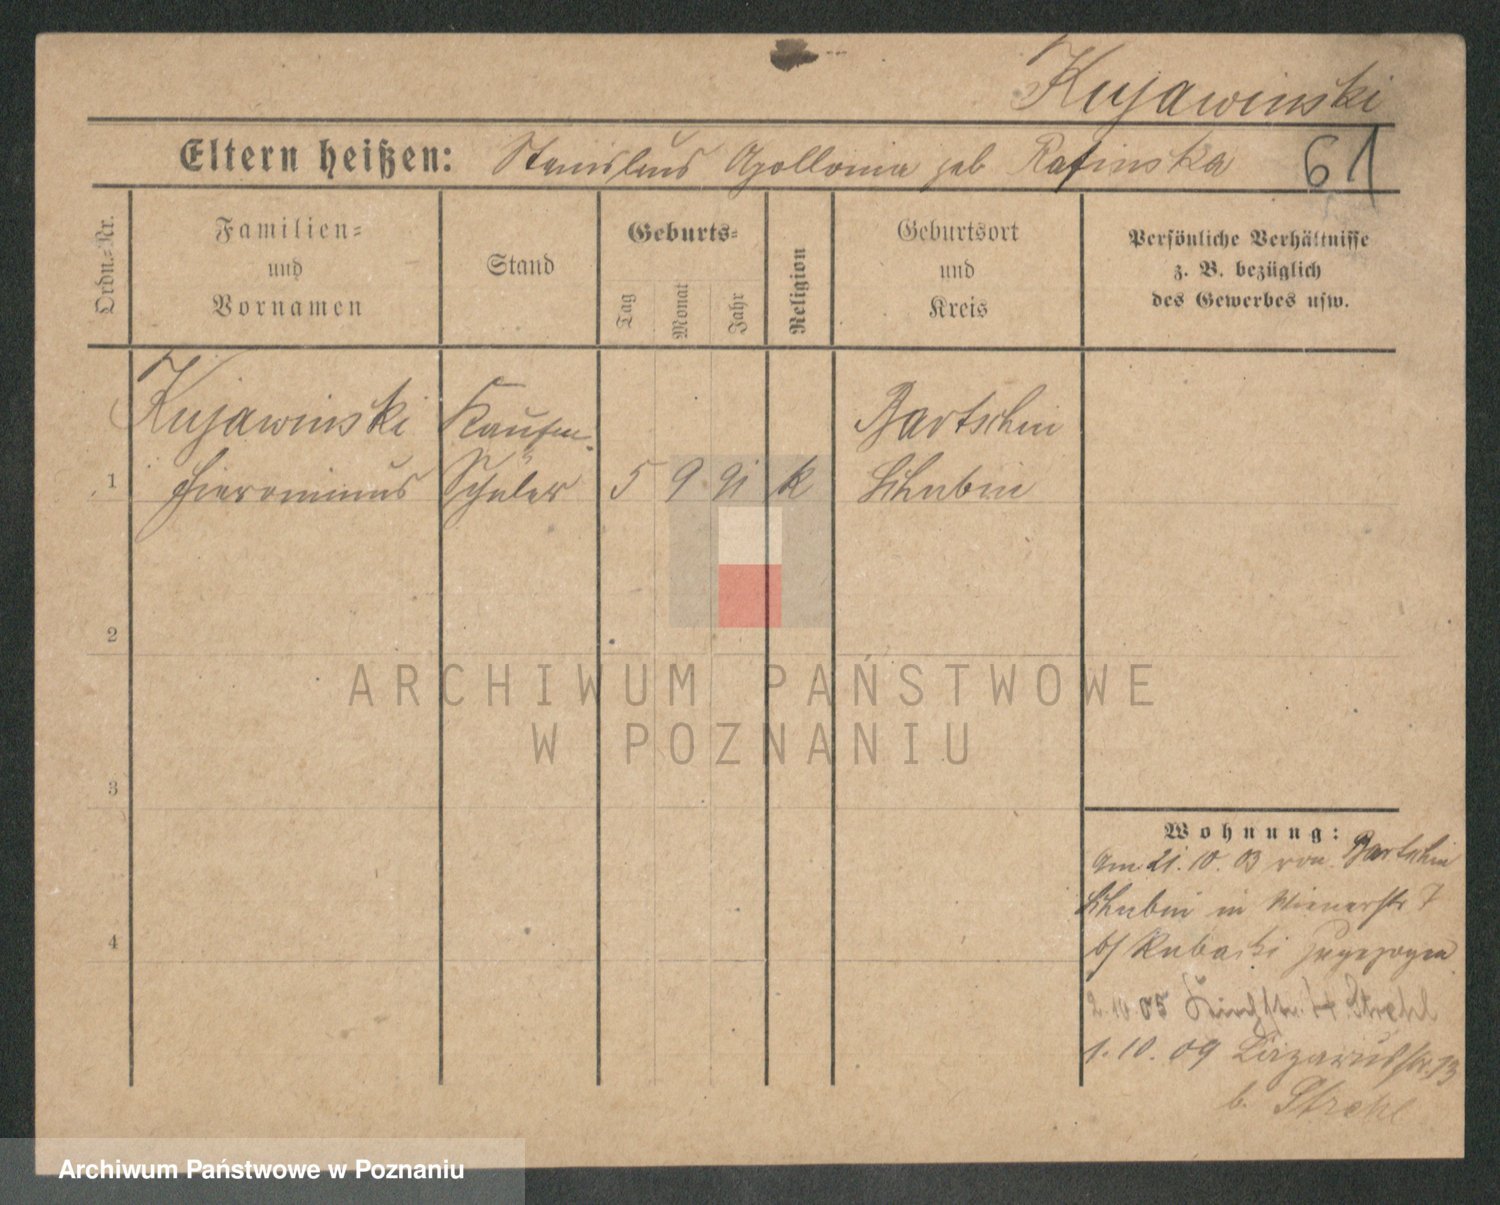 Kujawinski
Eltern heißen: Stanislaus Apollonia geb Rafinska 61
Ordn.-Nr.
Familien-
und
Vornamen
Stand
Geburts-
Tag
Monat
Jahr
Religion
Geburtsort
und
Kreis
Persönliche Verhältnisse
z. B. bezüglich
des Gewerbes usw.
Kujawinski Kaufm. Bartschin
1 Hieronimus Schüler 5 9 91 k Schubin
2
3
4
Wohnung:
Am 21. 10. 03 von Bartschin
Schubin in Wienerstr 7
b/ Rubacki zugezogen
2.10.05 Kirchstr. 14 Strehl
1. 10. 09 Lazarusstr. 13
b. Strehl
ARCHIWUM PAŃSTWOWE
W POZNANIU
Archiwum Państwowe w Poznaniu